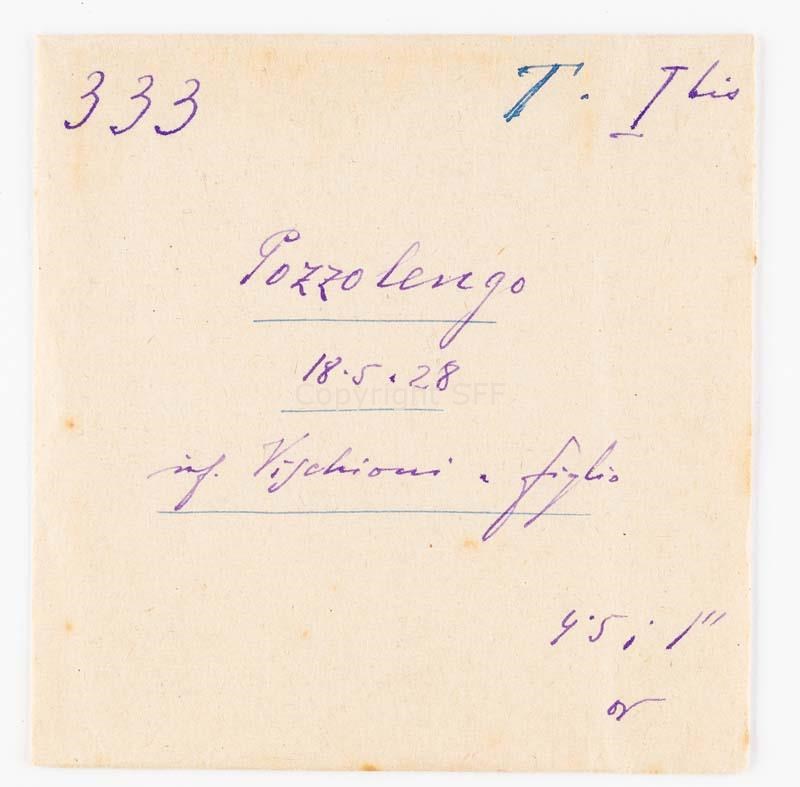 333 T. I bis
Pozzolengo
18.5.28
Copyright SFF
inf. Vischioni e figlio
4.5 ; 1"
or